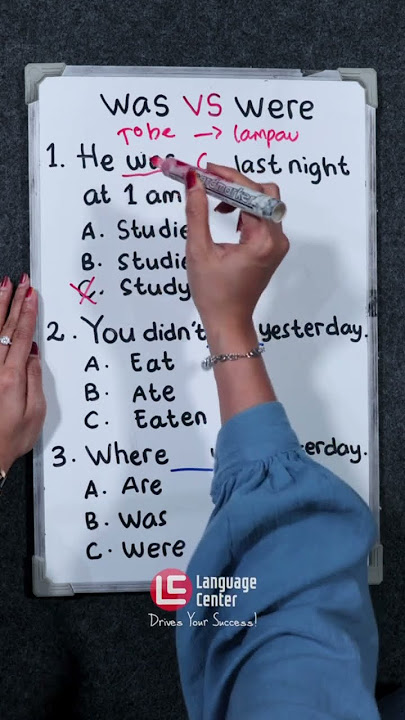 was VS were
To be → lampau
1. He was last night
at 1 am
A. Studie
B. Studie
C. Study
2. You didn't yesterday.
A. Eat
B. Ate
C. Eaten
3. Where erday.
A. Are
B. Was
C. Were
LC Language
Center
Drives Your Success!